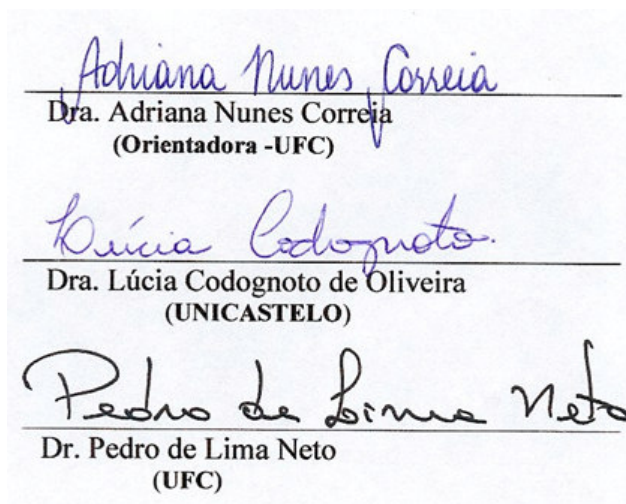 Adriana Nunes Correia
Dra. Adriana Nunes Correia
(Orientadora -UFC)
Lúcia Codognoto.
Dra. Lúcia Codognoto de Oliveira
(UNICASTELO)
Pedro de Lima Neto
Dr. Pedro de Lima Neto
(UFC)